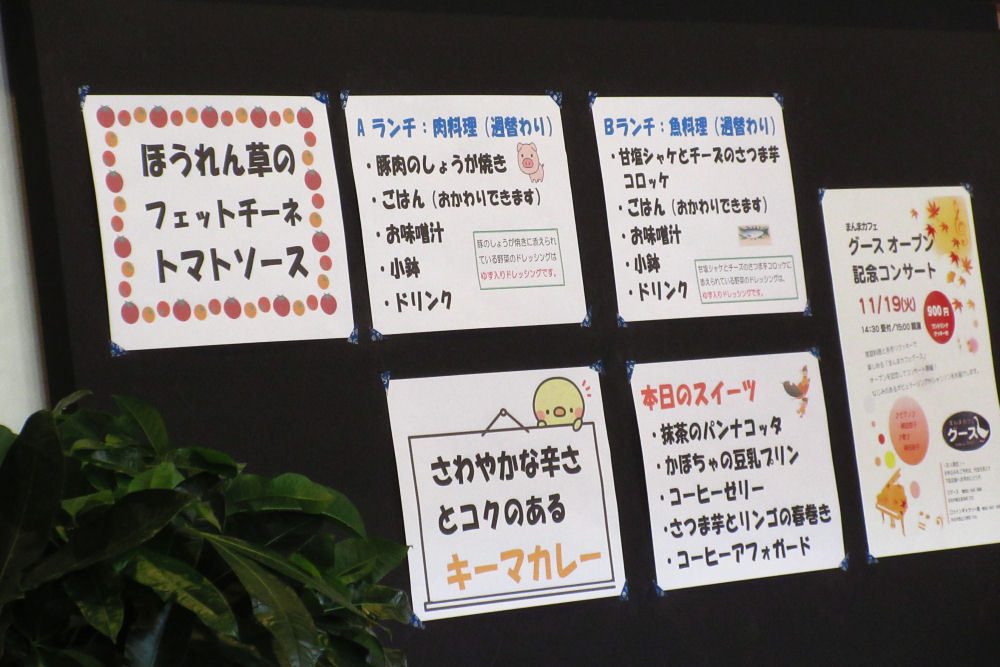 ほうれん草の
フェットチーネ
トマトソース
A ランチ：肉料理（週替わり）
・豚肉のしょうが焼き
・ごはん（おかわりできます）
・お味噌汁
・小鉢
・ドリンク
豚のしょうが焼きに添えられ
ている野菜のドレッシングは
ゆず入りドレッシングです。
Bランチ：魚料理（週替わり）
・甘塩シャケとチーズのさつま芋
コロッケ
・ごはん（おかわりできます）
・お味噌汁
・小鉢
・ドリンク
甘塩シャケとチーズのさつま芋コロッケに
添えられている野菜のドレッシングは、
ゆず入りドレッシングです。
さわやかな辛さ
とコクのある
キーマカレー
本日のスイーツ
・抹茶のパンナコッタ
・かぼちゃの豆乳プリン
・コーヒーゼリー
・さつま芋とリンゴの春巻き
・コーヒーアフォガード
まんまカフェ
グース オープン
記念コンサート
11/19(火)
900円
14:30 受付/15:00 開演
グース